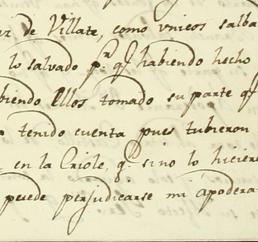 de Villate, como vnicos salba
lo salvado p.r q.e habiendo hecho
biendo Ellos tomado su parte q.e
tenido cuenta pues tubieron
en la Criole, q.e si no lo hiciere
puede perjudicarse mi apodera